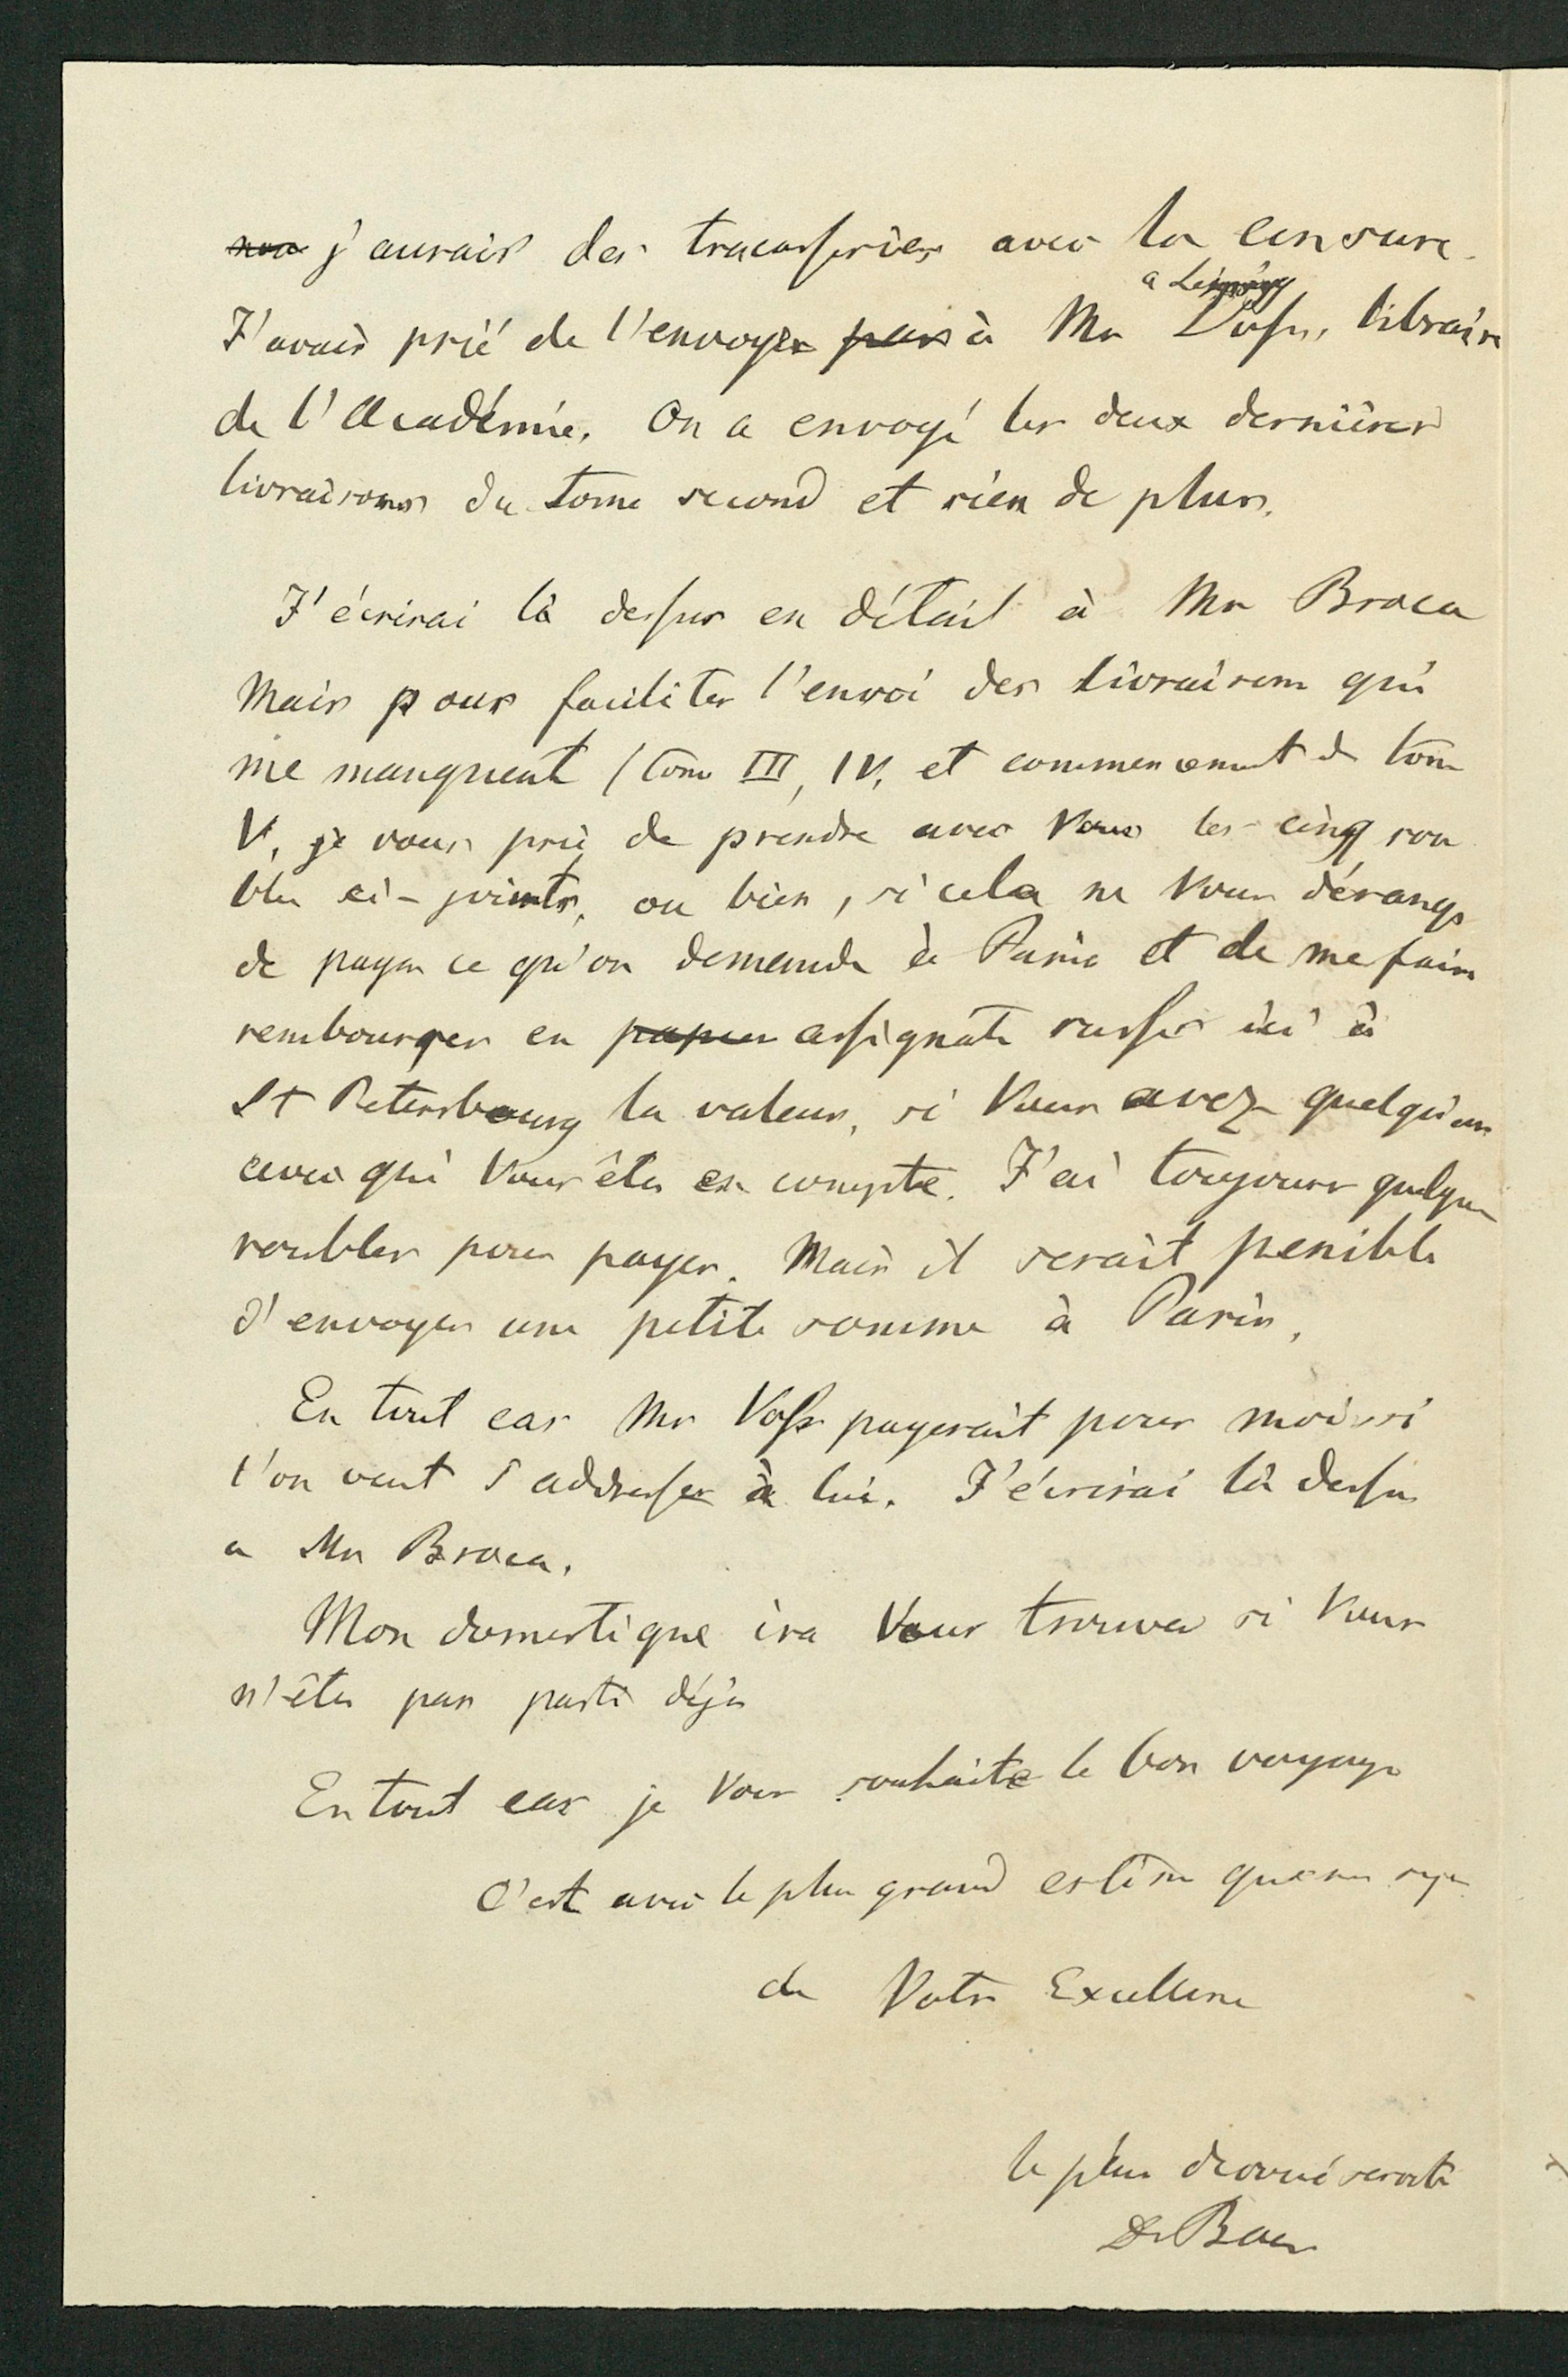 non j'aurais des tracasseries avec la censure.
a Leipzig
J'avais prié de l'envoyer par à Mr Voss, libraire
de l'Académie. On a envoyé les deux dernières
livraisons du tome second et rien de plus.
J'écrirai là dessus en détail à Mr Broca
Mais pour faciliter l'envoi des livraisons qui
me manquent (tome III, IV, et commencement de tom
V, je vous prie de prendre avec Vous les cinq rou
bles ci-joints, ou bien, si cela ne Vous dérange
de payer ce qu'on demande à Paris et de me faire
rembourser en papier assignats russes ici à
St Petersbourg la valeur, si Vous avez quelqu'un
avec qui Vous êtes en compte. J'ai toujours quelques
roubles pour payer. Mais il serait penible
d'envoyer une petite somme à Paris.
En tout cas Mr Voss payerait pour moi si
l'on veut s'addresser à lui. J'écrirai là dessus
a Mr Broca.
Mon domestique ira Vous trouver si Vous
n'êtes pas parti déjà
En tout cas je Vous souhaite le bon voyage
C'est avec le plus grand estime que
de Votre Excellence
le plus devoué
Dr Baer